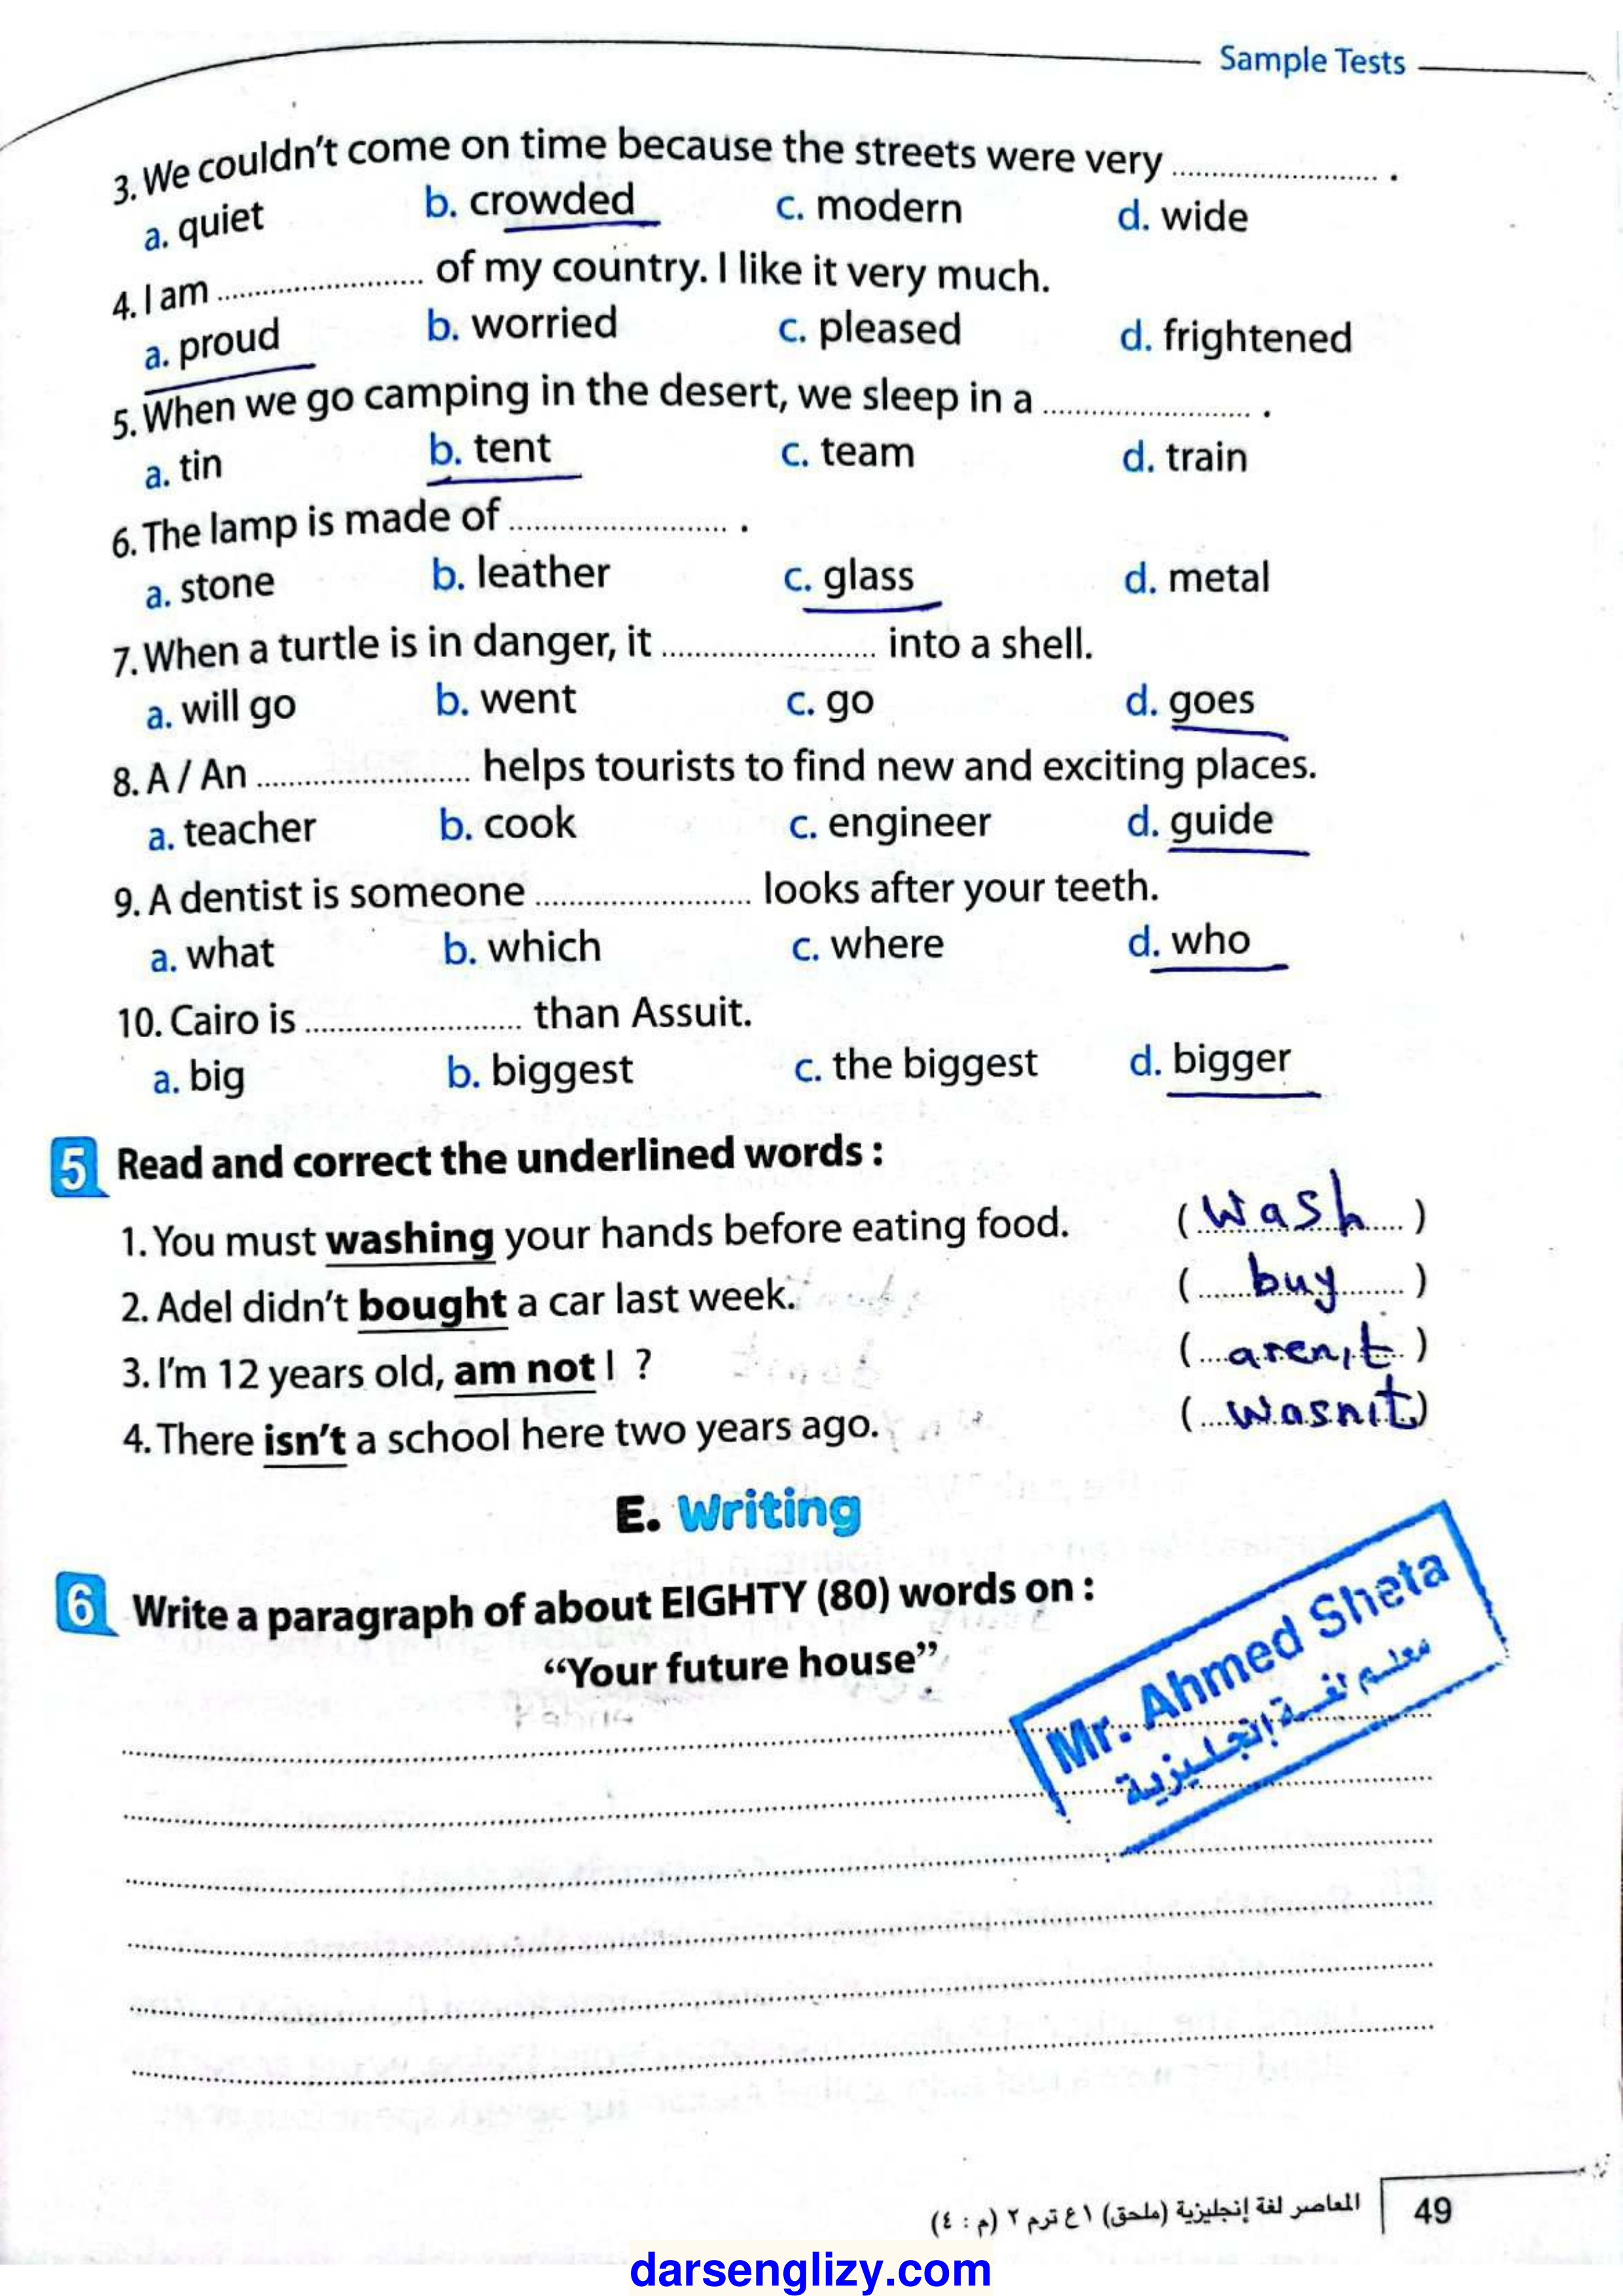 Sample Tests
3. We couldn't come on time because the streets were very ........................ .
a. quiet b. crowded c. modern d. wide
4. I am ........................ of my country. I like it very much.
a. proud b. worried c. pleased d. frightened
5. When we go camping in the desert, we sleep in a ........................ .
a. tin b. tent c. team d. train
6. The lamp is made of ........................ .
a. stone b. leather c. glass d. metal
7. When a turtle is in danger, it ........................ into a shell.
a. will go b. went c. go d. goes
8. A / An ........................ helps tourists to find new and exciting places.
a. teacher b. cook c. engineer d. guide
9. A dentist is someone ........................ looks after your teeth.
a. what b. which c. where d. who
10. Cairo is ........................ than Assuit.
a. big b. biggest c. the biggest d. bigger
5 Read and correct the underlined words :
1. You must washing your hands before eating food. (wash)
2. Adel didn't bought a car last week. (buy)
3. I'm 12 years old, am not I ? (aren't)
4. There isn't a school here two years ago. (wasn't)
E. Writing
6 Write a paragraph of about EIGHTY (80) words on :
“Your future house”
Mr. Ahmed Sheta
معلم لغة إنجليزية
المعاصر لغة إنجليزية (ملحق) ١ع ترم ٢ (م : ٤) 49
darsenglizy.com